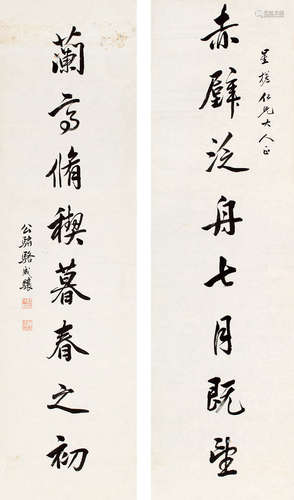 星槎仁兄大人正
赤壁泛舟七月既望
蘭亭脩禊暮春之初
公驌駱成驤